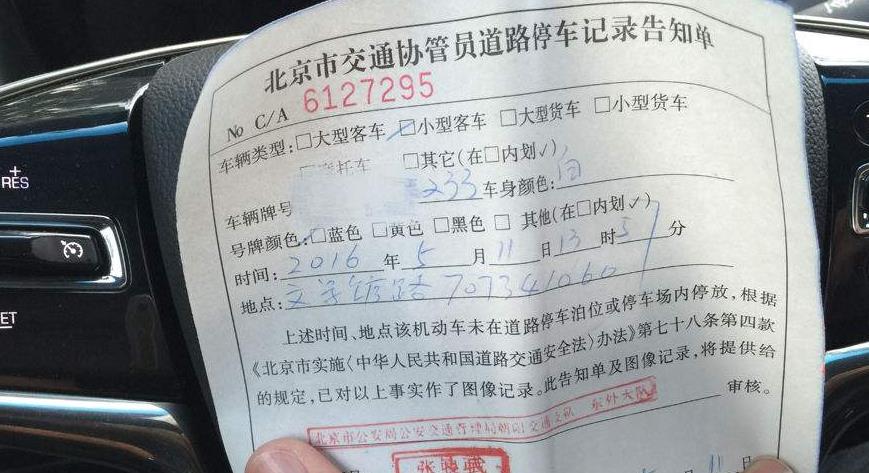 北京市交通协管员道路停车记录告知单
No C/A 6127295
车辆类型:□大型客车 □小型客车 □大型货车 □小型货车
托车 □其它(在□内划√)
车辆牌号 233 车身颜色:白
号牌颜色:□蓝色 □黄色 □黑色 □ 其他(在□内划√)
时间:2016年5月11日13时51分
地点:文学馆路 707341060
上述时间、地点该机动车未在道路停车泊位或停车场内停放,根据
《北京市实施〈中华人民共和国道路交通安全法〉办法》第七十八条第四款
的规定,已对以上事实作了图像记录。此告知单及图像记录,将提供给
审核。
北京市公安局公安交通管理局朝阳交通支队 东外大队
月11日
+
RES
ET